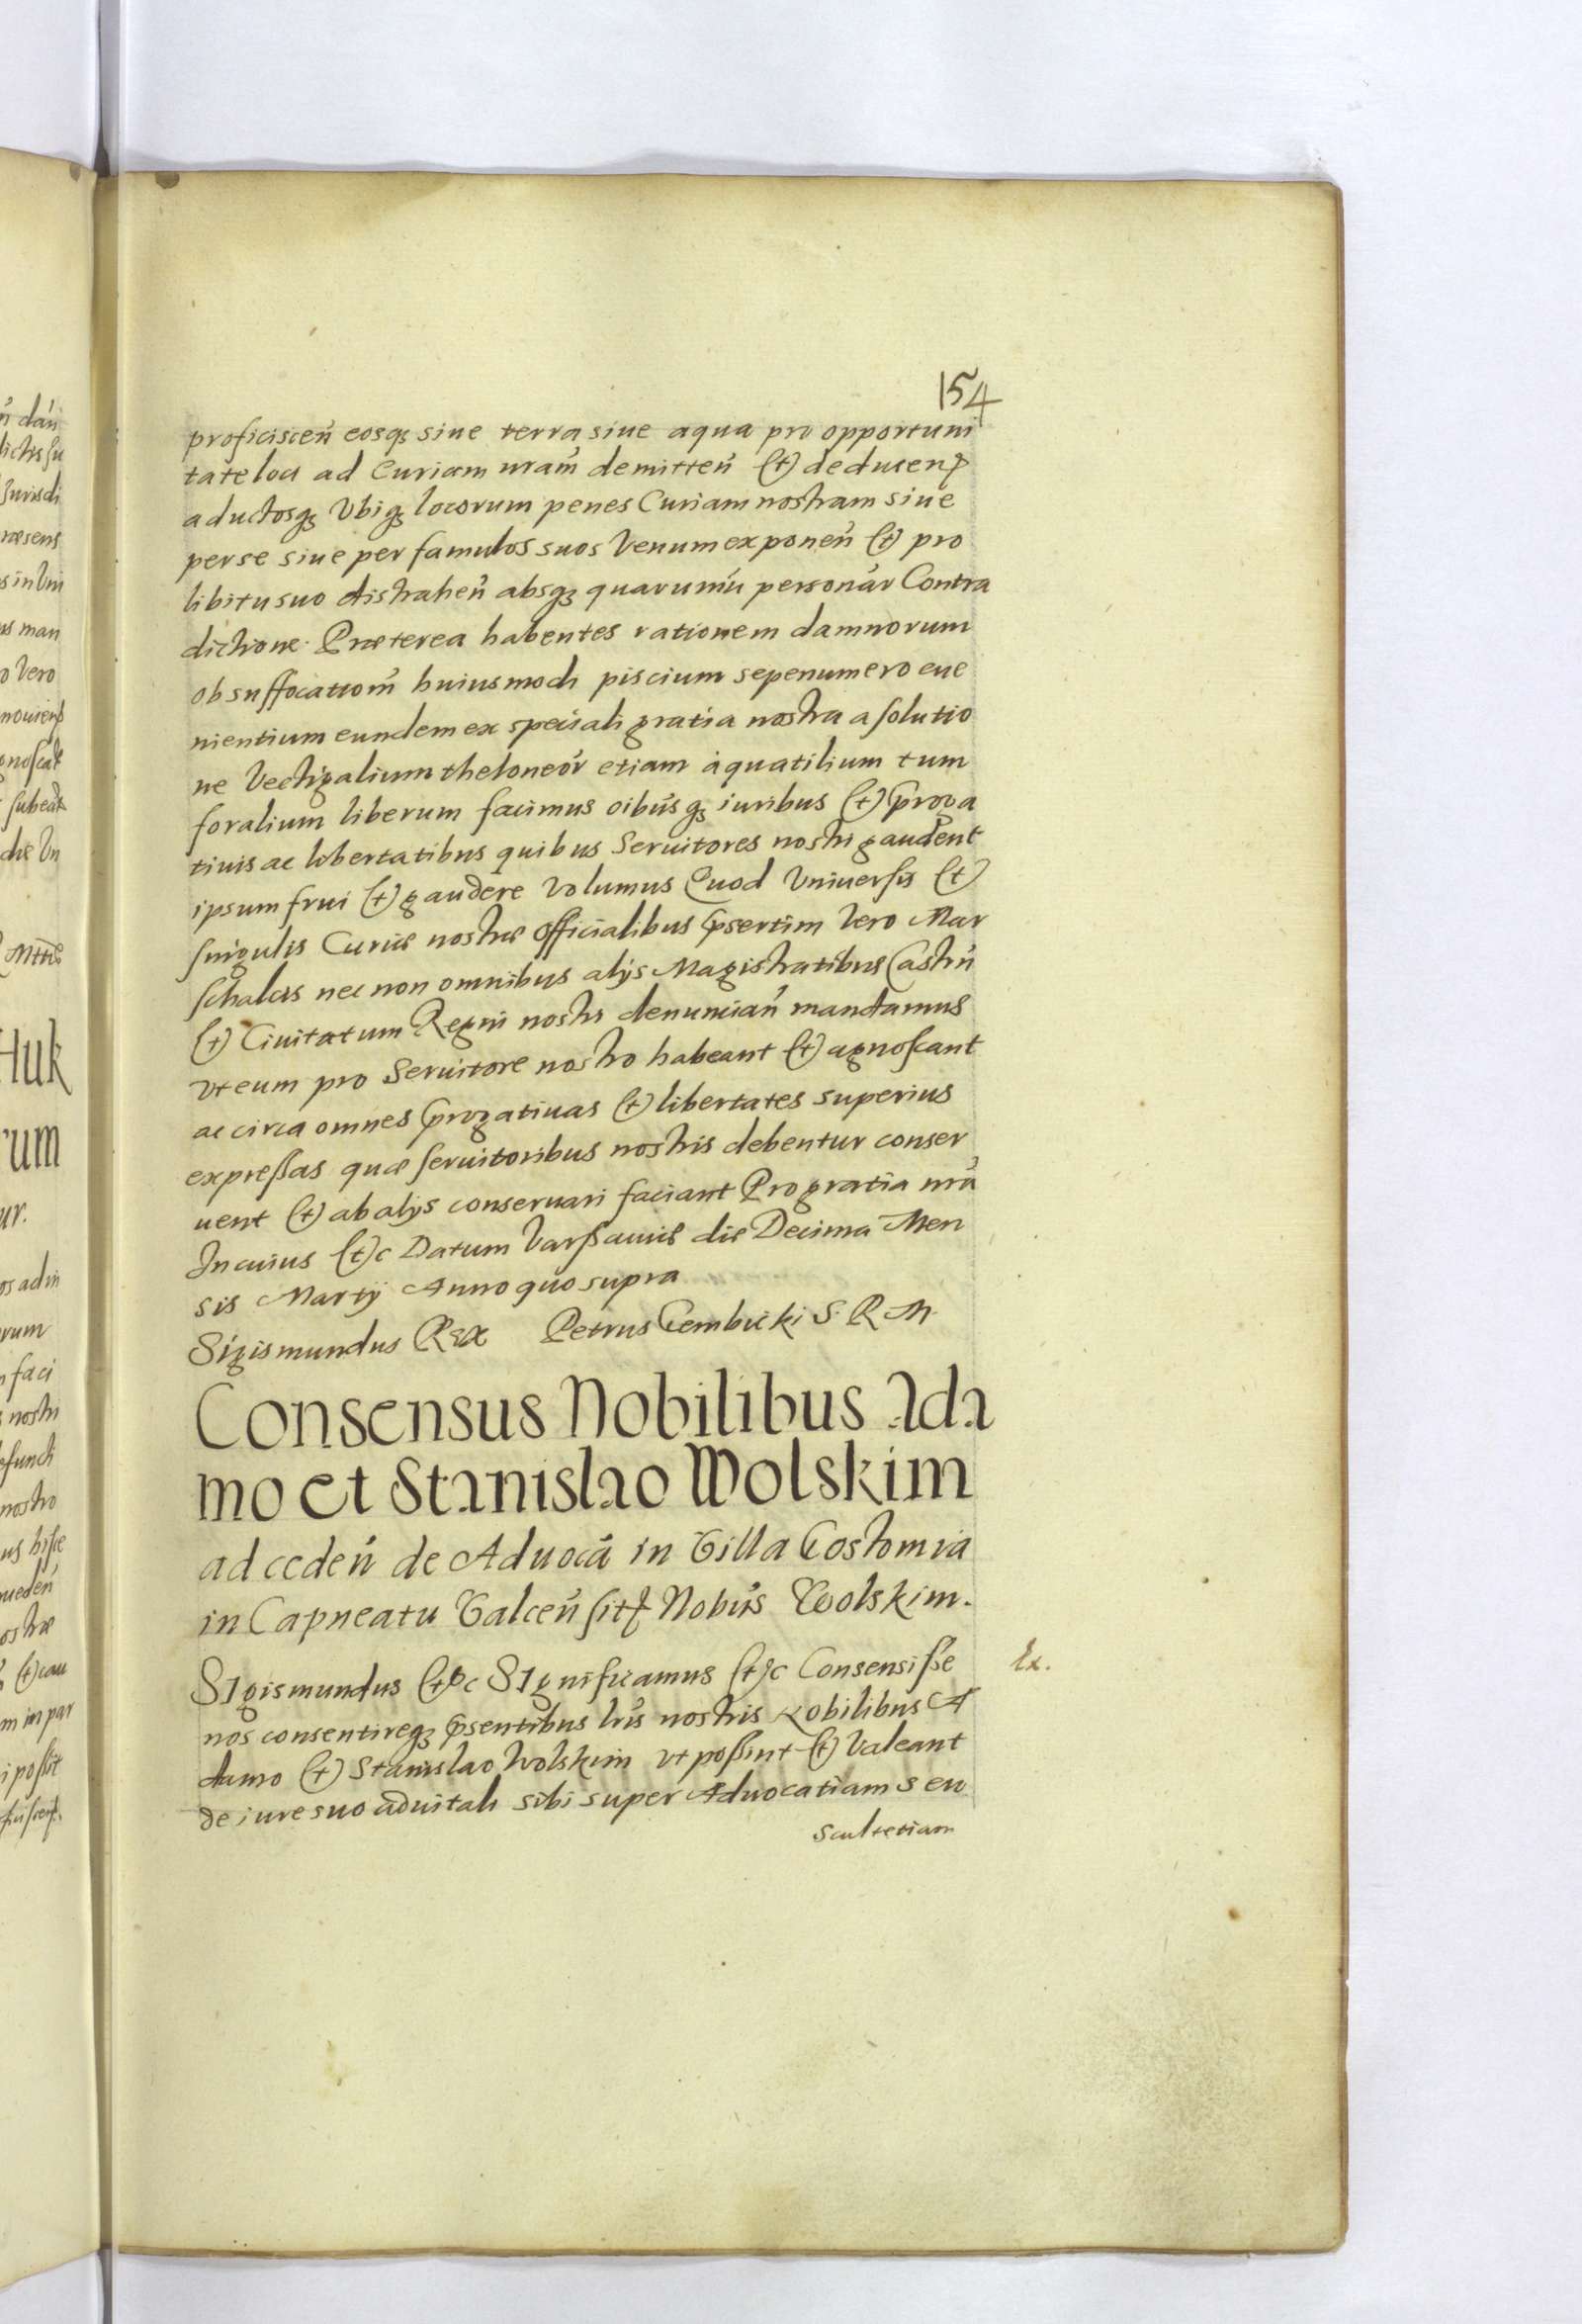 154
proficisceń eosq₃ siue terra siue aqua pro opportuni
tate loci ad Curiam nram̃ demitteń et deducenꝑ
aductosq₃ Vbiq₃ locorum penes Curiam nostram siue
per se siue per famulos suos Venum exponeń et pro
libitu suo distraheń absq₃ quarumũ personar̃ Contra
dictione. Præterea habentes rationem damnorum
ob suffocatiom̃ huiusmodi piscium sepenumero eue
nientium eundem ex speciali gratia nostra a solutio
ne Vectigalium theloneor̃ etiam aquatilium tum
foralium liberum facimus oibus̃q₃ iuribus et p̃roga
tiuis ac libertatibus quibus Seruitores nostri gaudent
ipsum frui et gaudere Volumus Quod Vniuersis et
singulis Curiæ nostræ Officialibus p̃sertim Vero Mar
schalcis nec non omnibus alijs Magistratibus Castrń
et Ciuitatum Regni nostri denunciań mandamus
vt eum pro Seruitore nostro habeant et agnoscant
ac circa omnes p̃rogatiuas et libertates superius
expreßas quæ seruitoribus nostris debentur conser
uent et ab alijs conseruari faciant Pro gratia nrã
In cuius etc Datum Varßauiæ die Decima Men
sis Martij Anno quo supra
Sigismundus Rex Petrus Gembicki S. R M.
Consensus Nobilibus Ada
mo et Stanislao Wolskim
ad cedeń de Aduocã in Villa Costomia
in Capneatu Valceń sitꝭ Nobus̃ Wolskim.
SIgismundus etc SIgnificamus etc Consensiße
Ex.
nos consentireq₃ p̃sentibus lris̃ nostris Nobilibus A
damo et Stanislao Wolskim vt poßint et Valeant
de iure suo aduitali sibi super Aduocatiam seu
Scultetiam